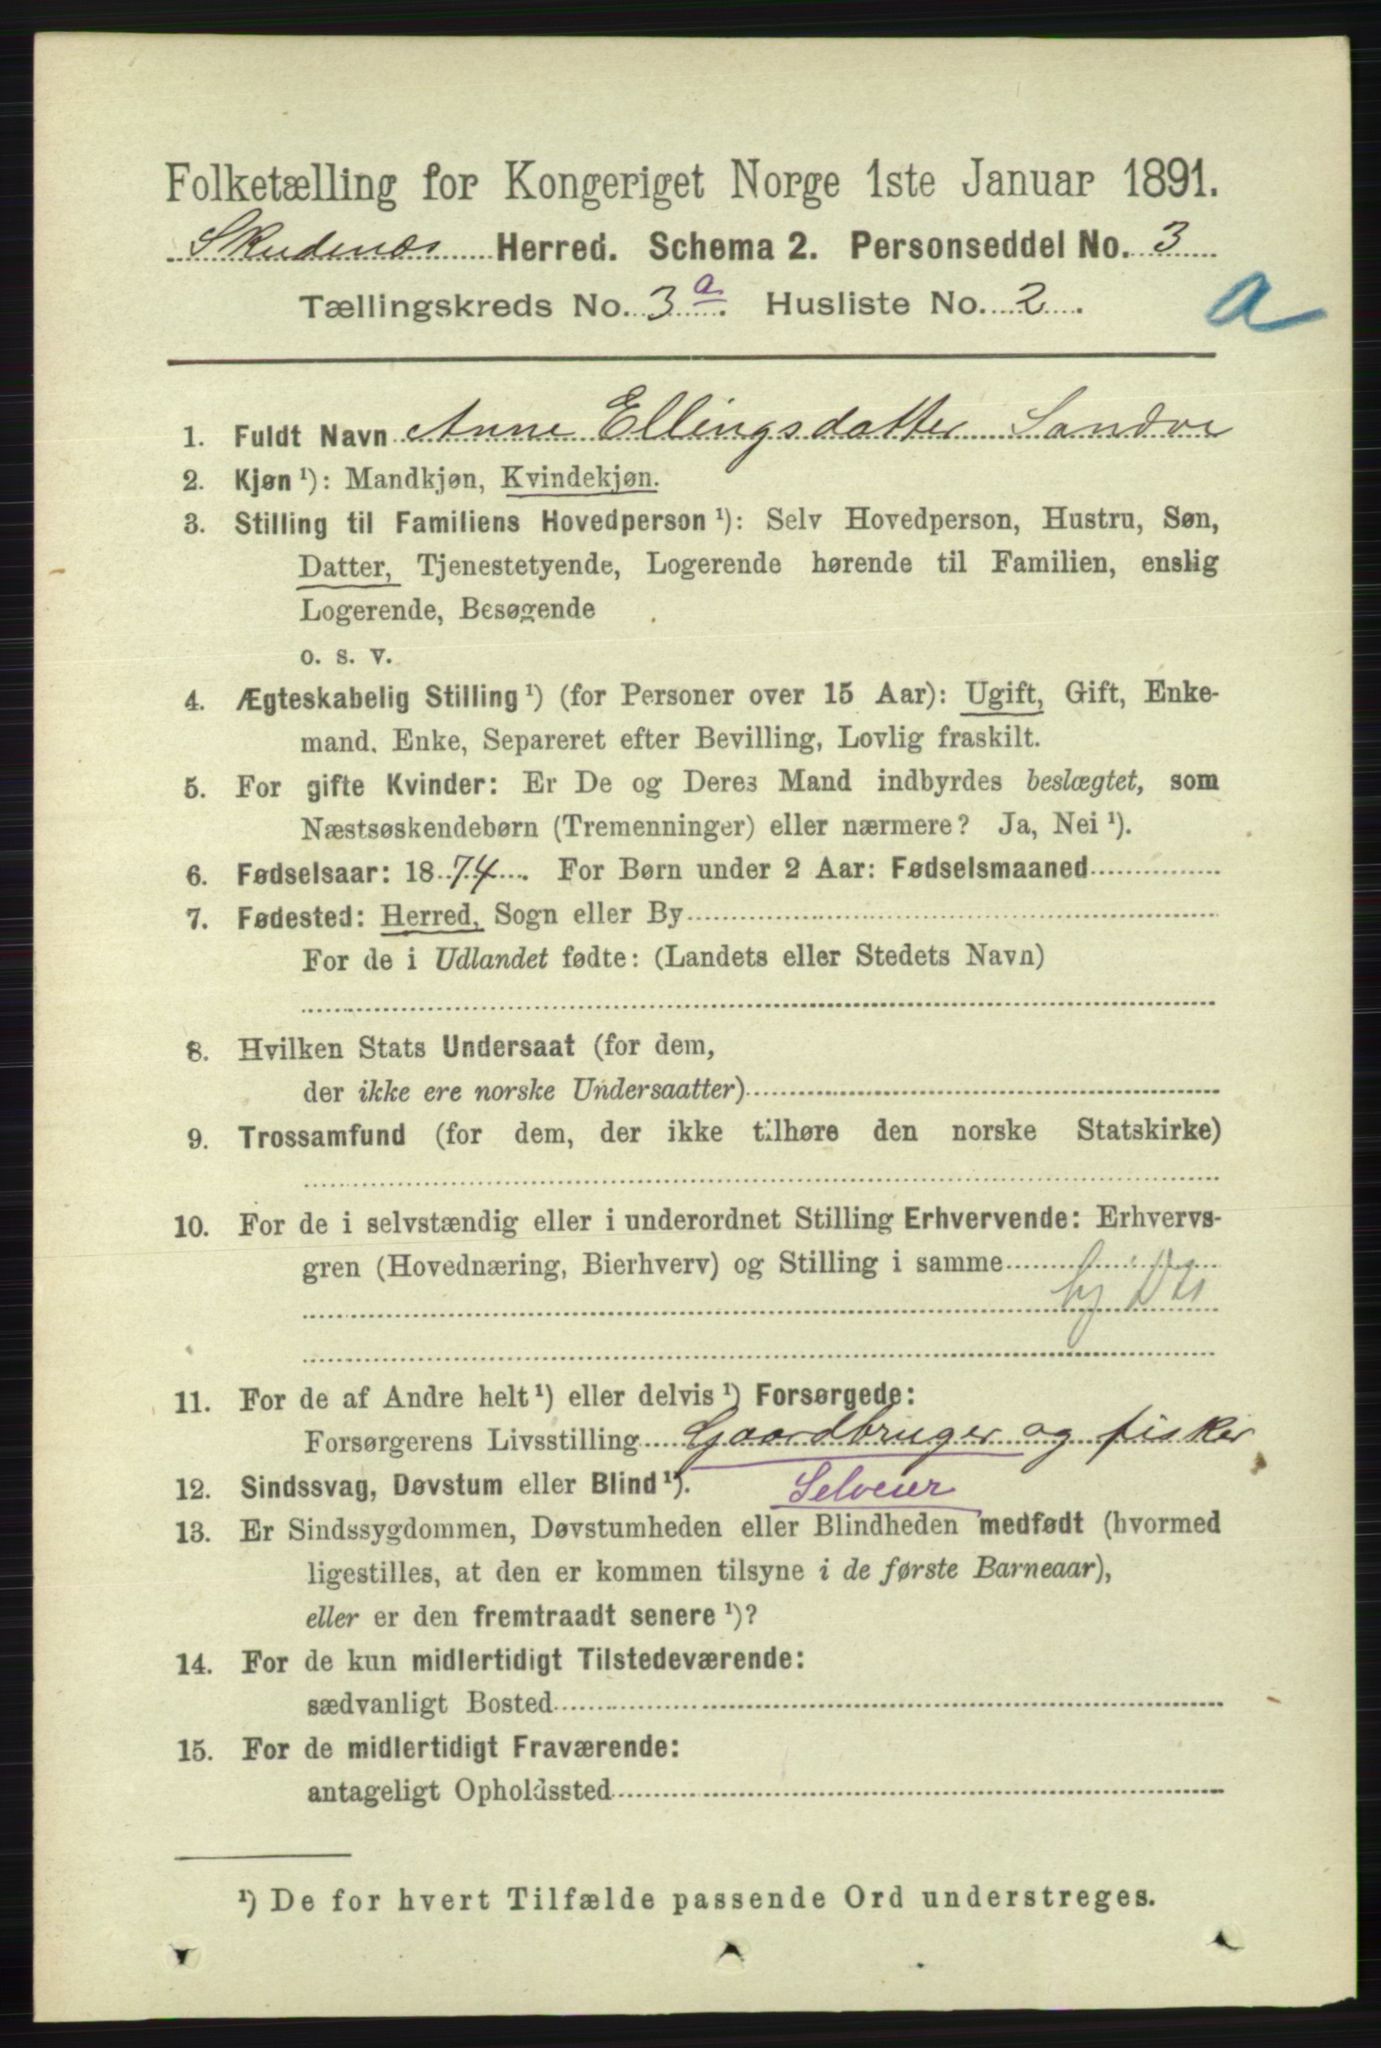 Folketælling for Kongeriget Norge 1ste Januar 1891.
Skudenæs Herred. Schema 2. Personseddel No. 3
Tællingskreds No. 3 a. Husliste No. 2.
a
1. Fuldt Navn Anne Ellingsdatter Sandve
2. Kjøn ¹): Mandkjøn, Kvindekjøn.
3. Stilling til Familiens Hovedperson ¹): Selv Hovedperson, Hustru, Søn,
Datter, Tjenestetyende, Logerende hørende til Familien, enslig
Logerende, Besøgende
o. s. v.
4. Ægteskabelig Stilling ¹) (for Personer over 15 Aar): Ugift, Gift, Enke-
mand, Enke, Separeret efter Bevilling, Lovlig fraskilt.
5. For gifte Kvinder: Er De og Deres Mand indbyrdes beslægtet, som
Næstsøskendebørn (Tremenninger) eller nærmere? Ja, Nei ¹).
6. Fødselsaar: 1874. For Børn under 2 Aar: Fødselsmaaned
7. Fødested: Herred, Sogn eller By
For de i Udlandet fødte: (Landets eller Stedets Navn)
8. Hvilken Stats Undersaat (for dem,
der ikke ere norske Undersaatter)
9. Trossamfund (for dem, der ikke tilhøre den norske Statskirke)
10. For de i selvstændig eller i underordnet Stilling Erhvervende: Erhvervs-
gren (Hovednæring, Bierhverv) og Stilling i samme
11. For de af Andre helt ¹) eller delvis ¹) Forsørgede:
Forsørgerens Livsstilling Gaardbruger og fisker
12. Sindssvag, Døvstum eller Blind ¹). Selveier
13. Er Sindssygdommen, Døvstumheden eller Blindheden medfødt (hvormed
ligestilles, at den er kommen tilsyne i de første Barneaar),
eller er den fremtraadt senere ¹)?
14. For de kun midlertidigt Tilstedeværende:
sædvanligt Bosted
15. For de midlertidigt Fraværende:
antageligt Opholdssted
¹) De for hvert Tilfælde passende Ord understreges.